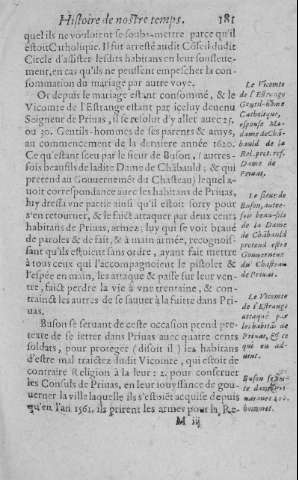 Histoire de nostre temps. 181
quel ils ne vouloient se souba-mettre parce qu'il
estoit Catholique. Il fut arresté audit Cõseil dudit
Circle d'assister lesdits habitans en leur soustenement,
en cas qu'ils ne peussent empescher la consommation
du mariage par autre voye.
Or depuis le mariage estant consommé, & le
Vicomte de l'Estrange estant par iceluy deuenu
Seigneur de Priuas, il se resolut d'y allet auec 25.
ou 30. Gentils-hommes de ses parents & amys,
au commencement de la derniere année 1620.
Ce qu'estant sceu par le sieur de Buson, (autresfois
beaufils de ladite Dame de Chãbauld, & qui
pretend au Gouuernemẽt du Chasteau) lequel auoit
correspondance auec les habitans de Priuas,
luy dressa vne partie ainsi qu'il estoit sorty pour
s'en retourner, & le fait attaquer par deux cents
habitans de Priuas, armez; luy qui se voit braué
de paroles & de fait, & à main armée, recognoissant
qu'ils estoient sans ordre, ayant fait mettre
à tous ceux qui l'accompagnoient le pistolet &
l'espée en main, les attaque & passe sur leur ventre,
faict perdre la vie à vne trentaine, & contrainct
les autres de se sauuer à la fuitte dans Priuas.
Buson se seruant de ceste occasion prend pretexte
de se ietter dans Priuas auec quatre cents
soldats, pour proteger (disoit il) les habitans
d'estre mal traictez dudit Vicomte, qui estoit de
contraire Religion à la leur: 2. pour conseruer
les Consuls de Priuas, en leur iouyssance de gouuerner
la ville laquelle ils s'estoiẽt acquise depuis
qu'en l'an 1561. ils prirent les armes pour la Re-
M iij
Le Vicomte
de l'Estrange
Gentil-hõme
Catholique,
espouse Madame
de Chãbauld
de la
Rel. pret. ref.
Dame de
Priuas.
Le sieur de
Buson, autresfois
beau-fils
de la Dame
de Chãbauld
pretend estre
Gouuerneur
du Chasteau
de Priuas.
Le Vicomte
de l'Estrange
attaqué par
les habitãs de
Priuas, & ce
qui en aduint.
Buson se
dans
auec 400.
hommes.